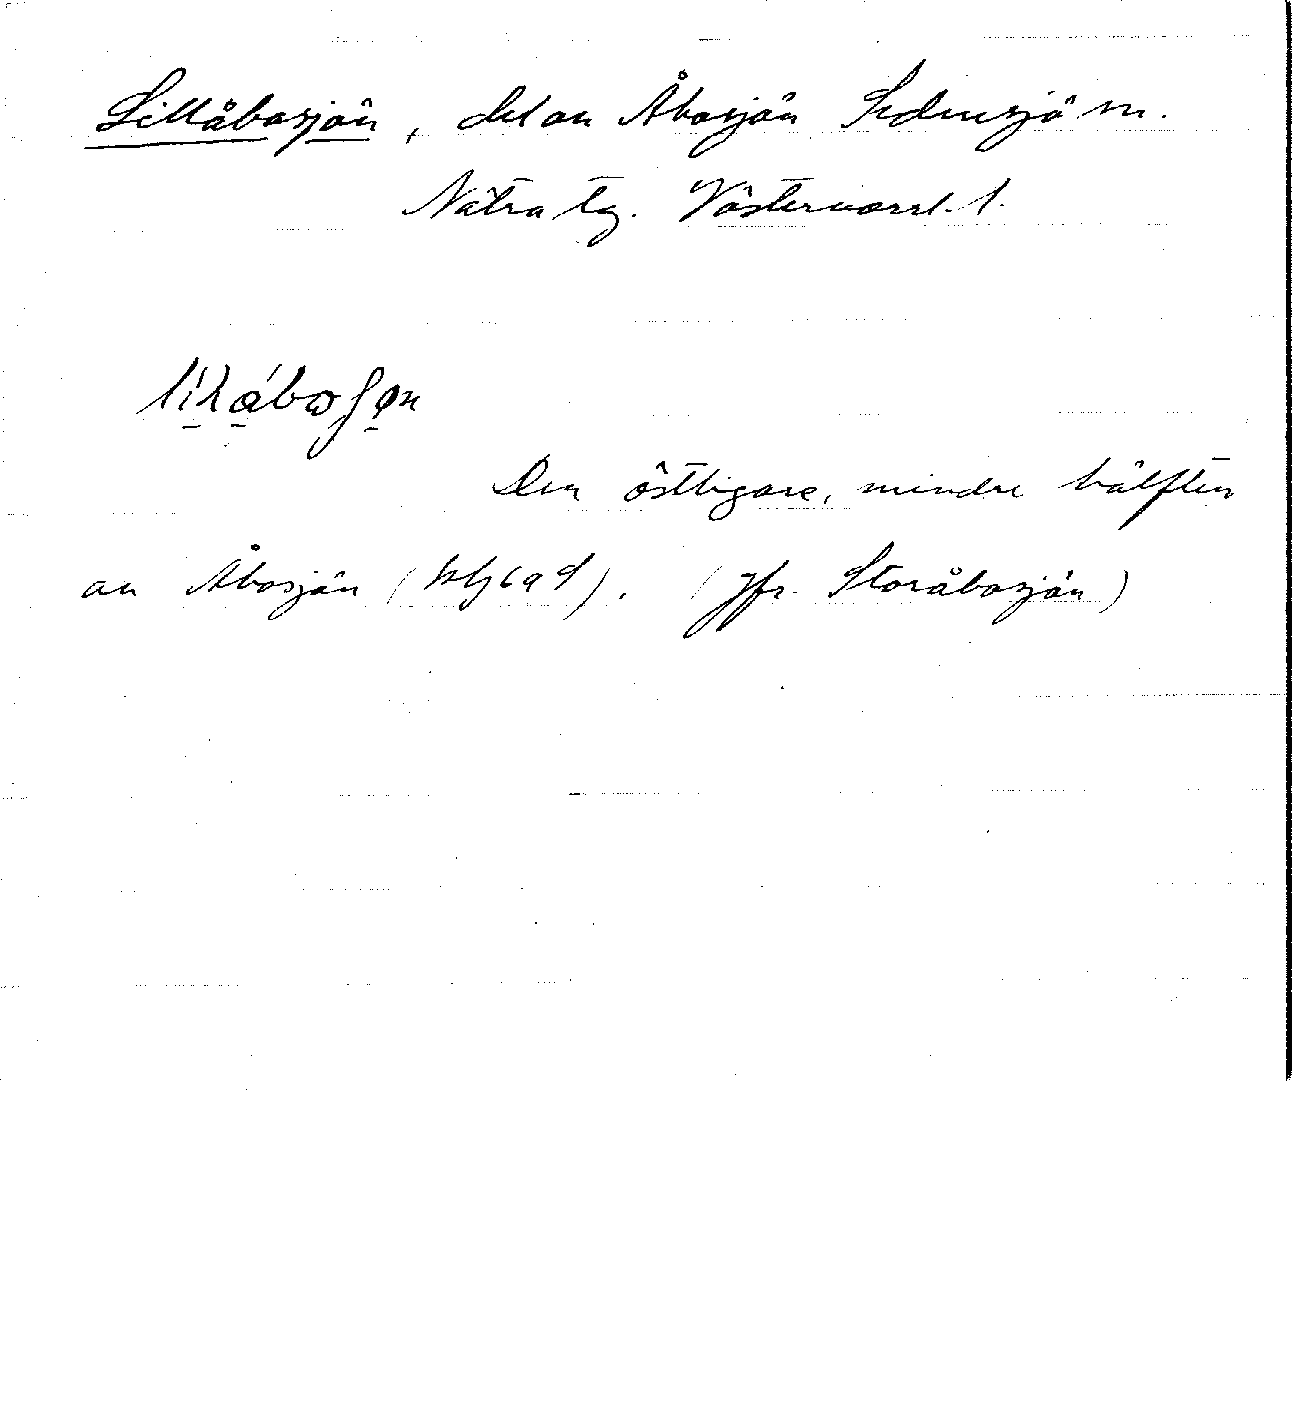 Lillåbosjön, del av Åbosjön Sidensjö sn.
Nätra tg. Västernorrl. l.
Den östligare, mindre hälften
av Åbosjön (blg 6 a 9). (Jfr. Storåbosjön)